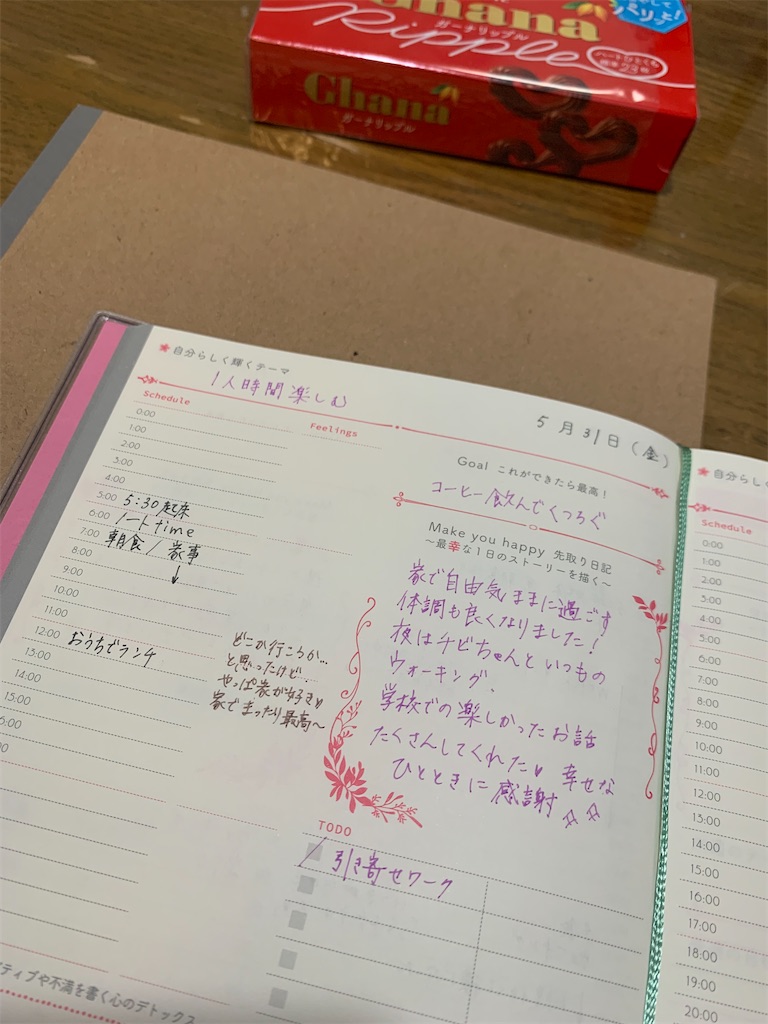 Ghana
ガーナリップル
Ripple
Ghana
ガーナリップル
自分らしく輝くテーマ
1人時間楽しむ
5月31日(金)
Schedule
Feelings
0:00
1:00
2:00
3:00
4:00
5:00 5:30起床
6:00 ノートtime
7:00 朝食/家事
8:00 ↓
9:00
10:00
11:00
12:00 おうちでランチ
13:00
14:00
15:00
どこか行こうか…
と思ったけど…
やっぱ家が好き♥
家でまったり最高〜
Goal これができたら最高!
コーヒー飲んでくつろぐ
Make you happy 先取り日記
〜最幸な1日のストーリーを描く〜
家で自由気ままに過ごす
体調も良くなりました!
夜はチビちゃんといつもの
ウォーキング、
学校での楽しかったお話
たくさんしてくれた♥ 幸せな
ひとときに感謝☆☆
TODO
引き寄せワーク
ティブや不満を書く心のデトックス
自分らし
Schedule
0:00
1:00
2:00
3:00
4:00
5:00
6:00
7:00
8:00
9:00
10:00
11:00
12:00
13:00
14:00
15:00
16:00
17:00
18:00
19:00
20:00